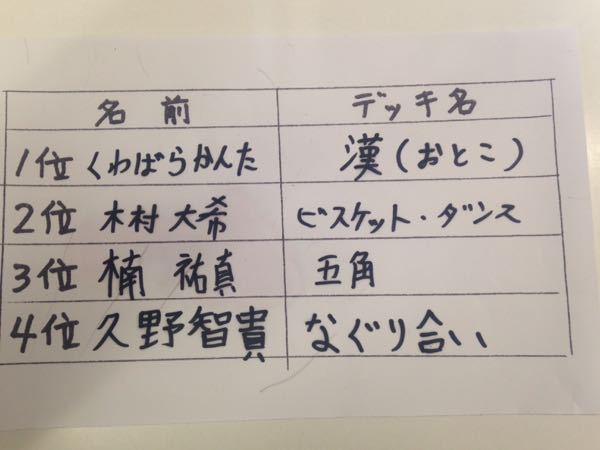 名前 デッキ名
1位 くわばらかんた 漢(おとこ)
2位 木村 大希 ビスケット・ダンス
3位 楠 祐真 五角
4位 久野智貴 なぐり合い